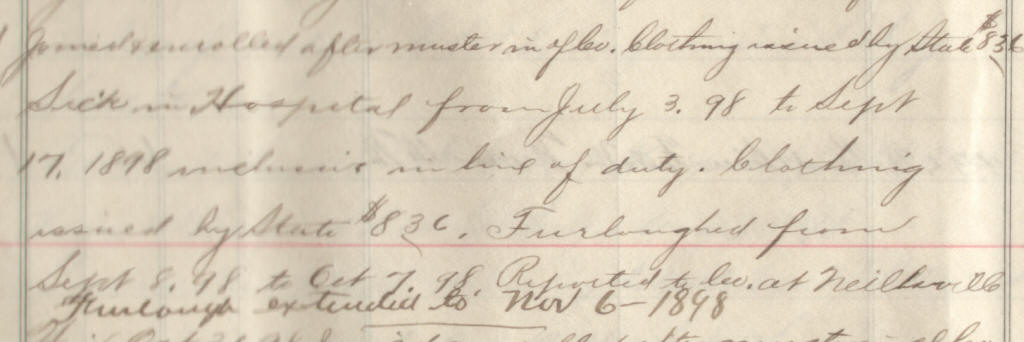 Joined & enrolled after muster in of Co. Clothing issued by State $8 36
Sick in Hospital from July 3. 98 to Sept
17, 1898 inclusive in line of duty. Clothing
issued by State $8 36. Furloughed from
Sept 8. 98 to Oct 7. 98. Reported to Co. at Neillsville
Furlough extended to Nov 6 - 1898